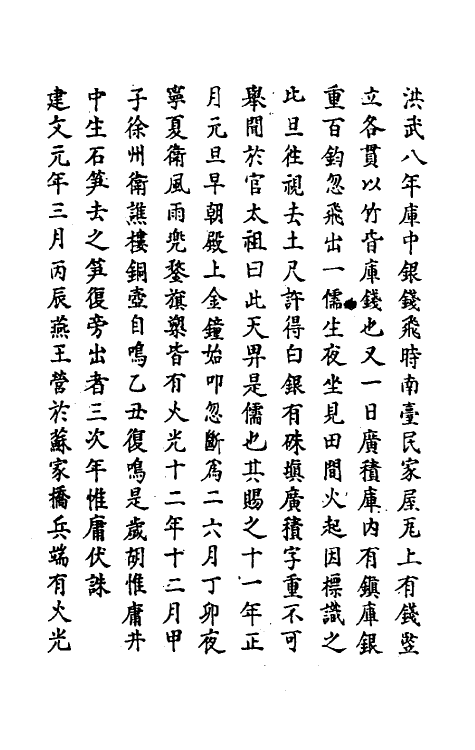 洪武八年庫中銀錢飛時南臺民家屋瓦上有錢竪
立各貫以竹皆庫錢也又一日廣積庫内有鎮庫銀
重百鈞忽飛出一儒生夜坐見田間火起因標識之
此旦往視去土尺許得白銀有硃塡廣積字重不可
舉聞於官太祖曰此天畀是儒也其賜之十一年正
月元旦早朝殿上金鐘始叩忽斷爲二六月丁卯夜
寧夏衛風雨兜鍪旗槊皆有火光十二年十二月甲
子徐州衛譙樓銅壺自鳴乙丑復鳴是歲胡惟庸井
中生石笋去之笋復旁出者三次年惟庸伏誅
建文元年三月丙辰燕王營於蘇家橋兵端有火光